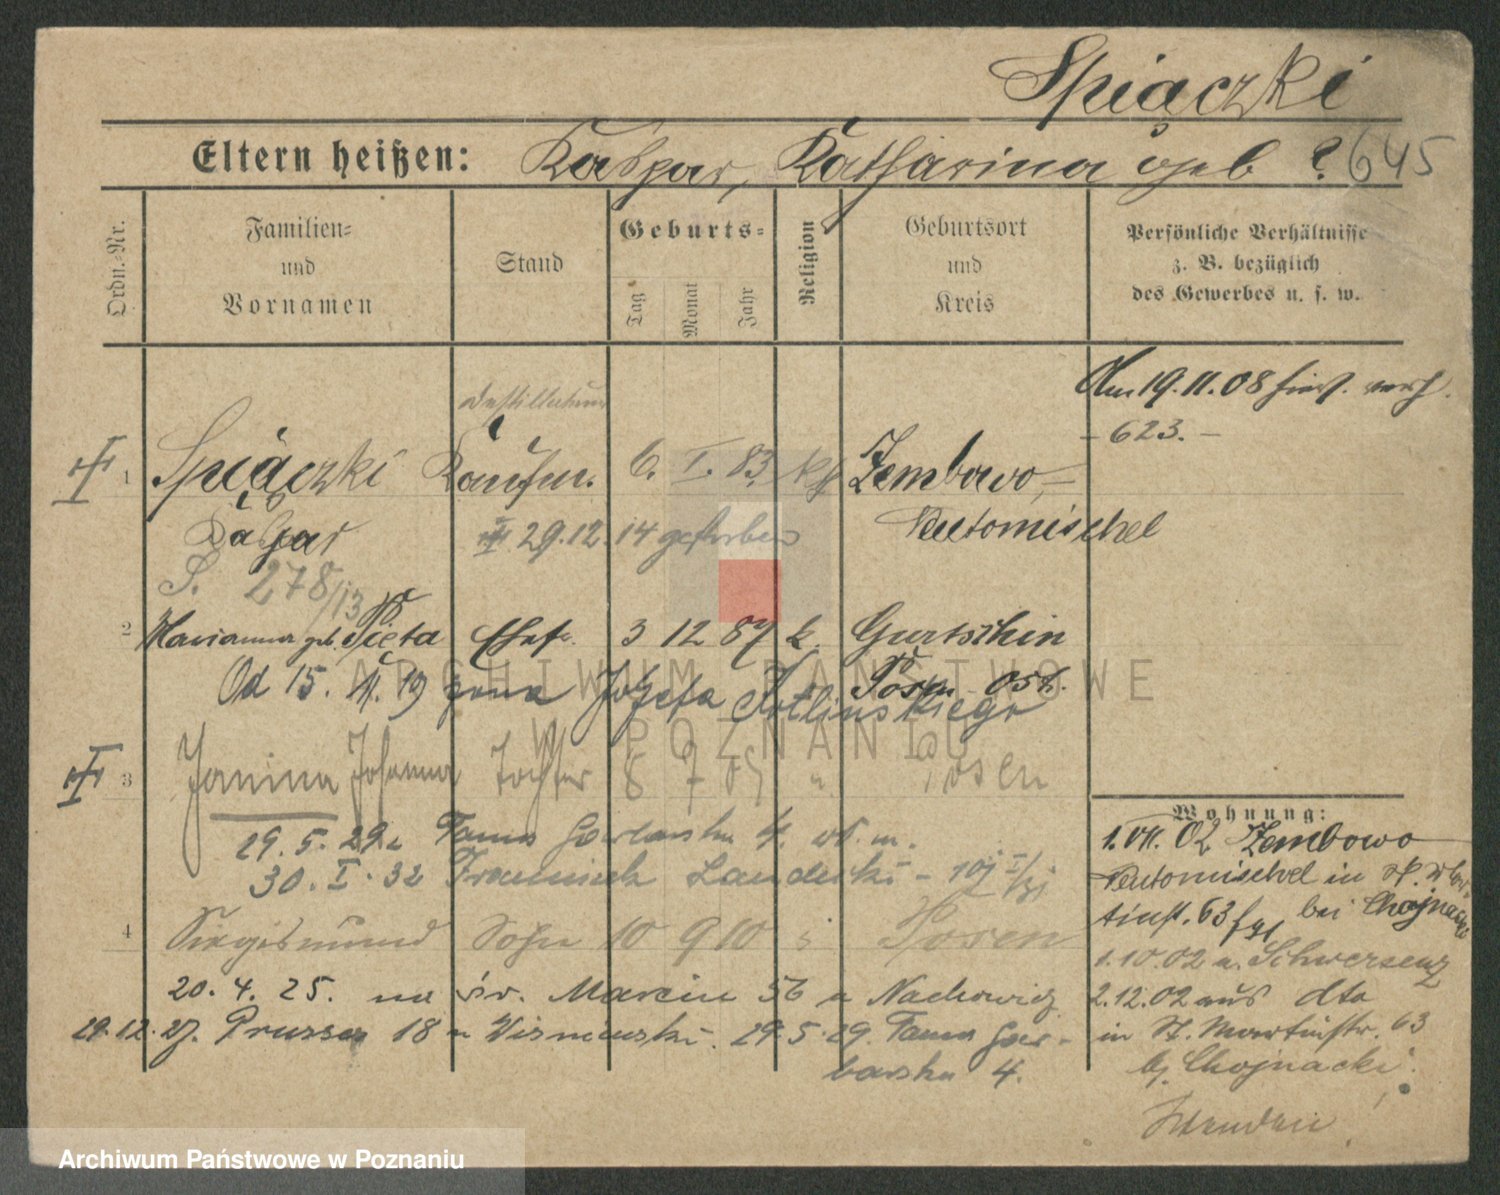 Spiączki
Eltern heißen: Kaspar, Katharina geb ? 645
Ordn.-Nr.
Familien-
und
Vornamen
Stand
Geburts-
Tag
Monat
Jahr
Religion
Geburtsort
und
Kreis
Persönliche Verhältnisse
z. B. bezüglich
des Gewerbes u. s. w.
Am 19.11.08 hier verh.
- 623. -
1 Spiączki Kaufm. 6. I. 83 Zembowo
Kaspar 29.12.14 gestorben Neutomischel
S. 278/13
2 Marianna geb. Pięta Ehefr. 3 12 87 k. Gurtschin
Posen Ost.
Od 15. 19 żona Józefa
3 Janina Johanna Tochter 8 7 09 " Posen
29.5.29 Tama Garbarska 4
30. I. 32 Landecki
4 Siegismund Sohn 10 9 10 Posen
20. 4. 25. na św. Marcin 56 u Nachowicz
29.12.27. Prusa 18 u Wisniewski. 29.5.29. Tama Gar-
barska 4.
Wohnung:
02 Zembowo
Neutomischel in St. Mar-
tinst. 63 bei Chojnacki
1.10.02 n. Schwersenz
2.12.02 aus dto
in St. Martinstr. 63
bj. Chojnacki.
ARCHIWUM PAŃSTWOWE
W POZNANIU
Archiwum Państwowe w Poznaniu